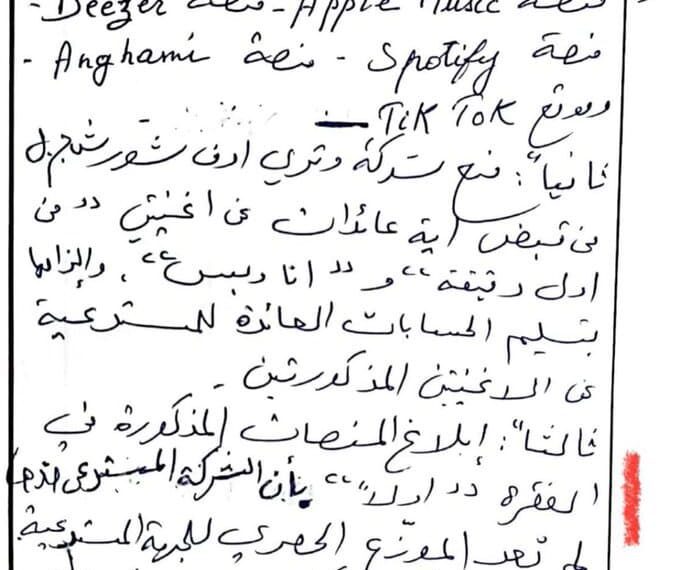 منصة Apple Music - منصة Deezer -
منصة Spotify - منصة Anghami -
وموقع TikTok
ثانياً: منع شركة وتري اوف شور ش.م.ل
من قبض اية عائدات عن اغنيتي "من
اول دقيقة" و "انا وبس"، والزامها
بتسليم الحسابات العائدة للمستدعية
عن الاغنيتين المذكورتين -
ثالثا": إبلاغ المنصات المذكورة في
الفقرة "اولاً" بأن الشركة المستدعى ضدها
لم تعد الموزّع الحصري للجهة المستدعية